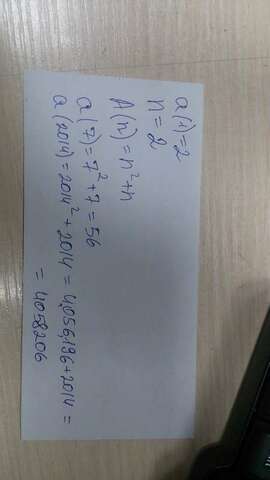 a(1)=2
n=2
A(n)=n²+n
a(7)=7²+7=56
a(2014)=2014²+2014=4056196+2014=
=4058206